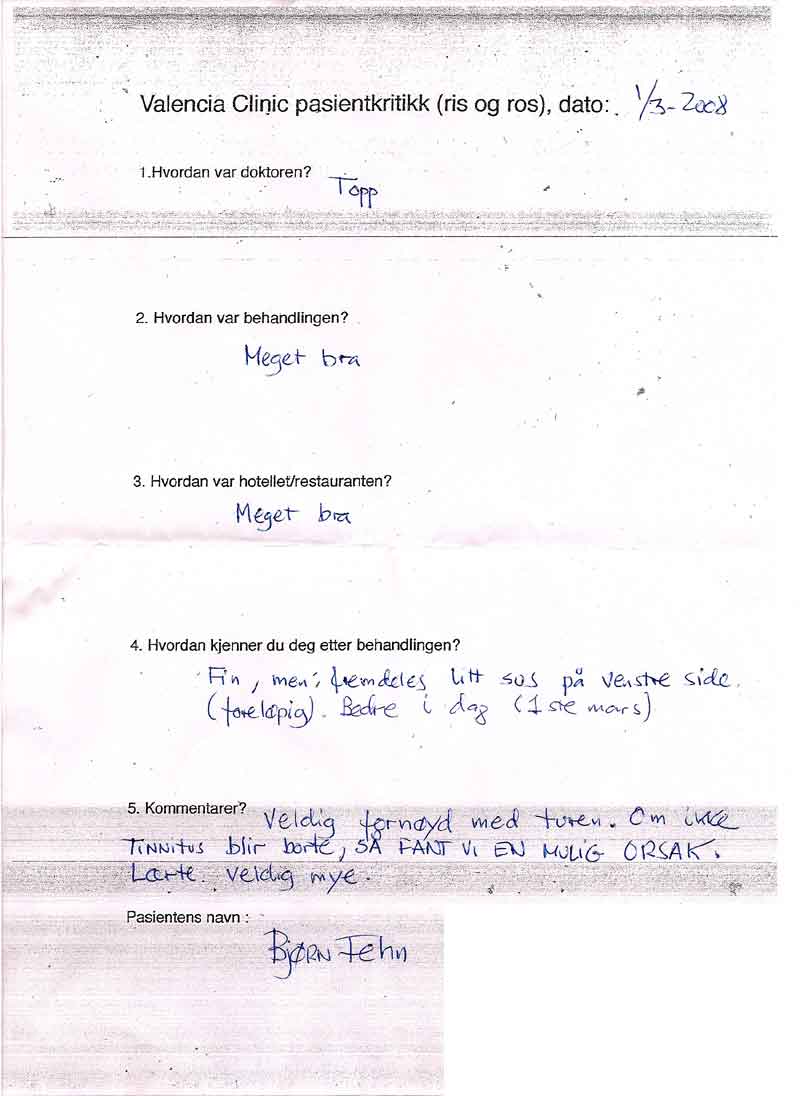 Valencia Clinic pasientkritikk (ris og ros), dato: 1/3-2008
1.Hvordan var doktoren?
Topp
2. Hvordan var behandlingen?
Meget bra
3. Hvordan var hotellet/restauranten?
Meget bra
4. Hvordan kjenner du deg etter behandlingen?
Fin, men, fremdeles litt sus på venstre side.
(foreløpig). Bedre i dag (1ste mars)
5. Kommentarer? Veldig fornøyd med turen. Om ikke
TINNITUS blir borte, SÅ FANT VI EN MULIG ORSAK.
Lærte veldig mye.
Pasientens navn :
BJØRN Fehn